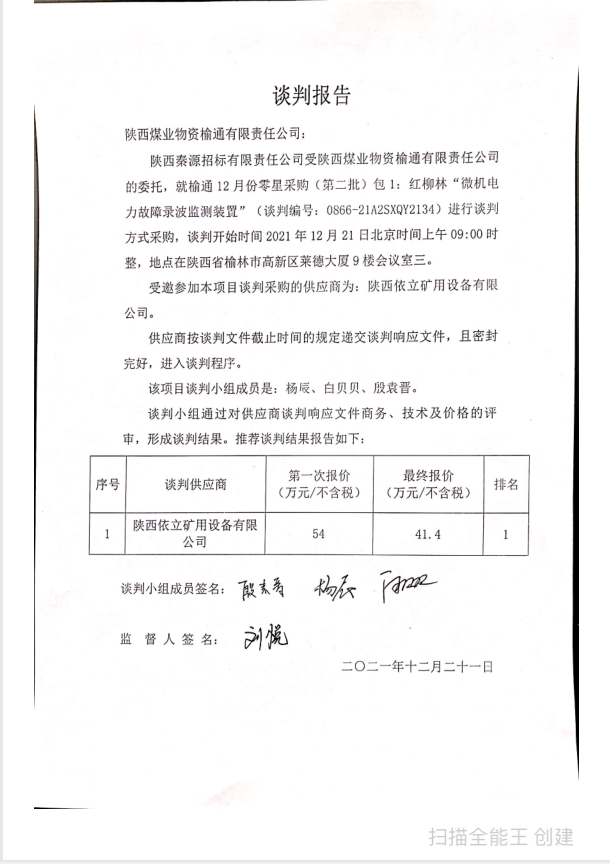 谈判报告
陕西煤业物资榆通有限责任公司：
陕西秦源招标有限责任公司受陕西煤业物资榆通有限责任公司
的委托，就榆通 12 月份零星采购（第二批）包 1：红柳林“微机电
力故障录波监测装置”（谈判编号：0866-21A2SXQY2134）进行谈判
方式采购，谈判开始时间 2021 年 12 月 21 日北京时间上午 09:00 时
整，地点在陕西省榆林市高新区莱德大厦 9 楼会议室三。
受邀参加本项目谈判采购的供应商为：陕西依立矿用设备有限
公司。
供应商按谈判文件截止时间的规定递交谈判响应文件，且密封
完好，进入谈判程序。
该项目谈判小组成员是：杨辰、白贝贝、殷袁晋。
谈判小组通过对供应商谈判响应文件商务、技术及价格的评
审，形成谈判结果。推荐谈判结果报告如下：
序号 谈判供应商 第一次报价 最终报价 排名
（万元/不含税） （万元/不含税）
1 陕西依立矿用设备有限 54 41.4 1
公司
谈判小组成员签名： 殷袁晋 杨辰
监 督 人 签 名： 刘悦
二〇二一年十二月二十一日
扫描全能王 创建